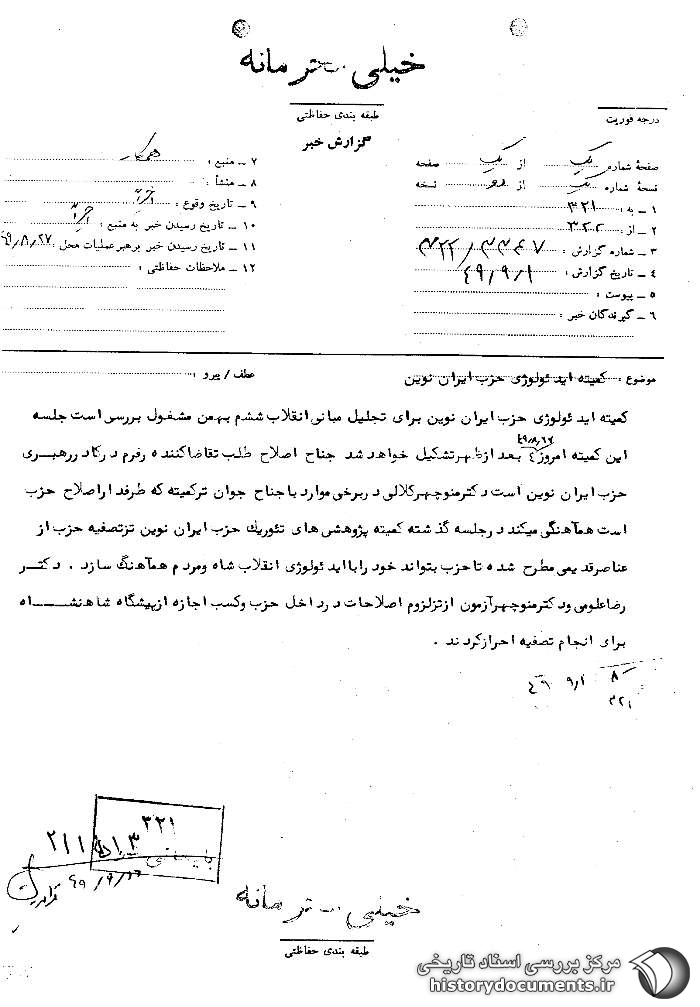 خیلی محترمانه
طبقه بندی حفاظتی
درجه فوریت
گزارش خبر
صفحهٔ شماره یک از یک صفحه
نسخهٔ شماره یک از دو نسخه
۱ – به : ۳۲۱
۲ – از : ۳۲۲
۳ – شماره گزارش : ۳۲۲/۳۳۴۷
۴ – تاریخ گزارش : ۴۹/۹/۱
۵ – پیوست :
۶ – گیرندگان خبر :
۷ – منبع : همکار
۸ – منشأ :
۹ – تاریخ وقوع : اخیراً
۱۰ – تاریخ رسیدن خبر به منبع : اخیراً
۱۱ – تاریخ رسیدن خبر برهبر عملیات محل : ۴۹/۸/۲۷
۱۲ – ملاحظات حفاظتی :
موضوع : کمیته اید ئولوژی حزب ایران نوین
عطف / پیرو :
کمیته اید ئولوژی حزب ایران نوین برای تحلیل مبانی انقلاب ششم بهمن مشغول بررسی است جلسه
این کمیته امروز ۴ بعد ازظهر تشکیل خواهد شد جناح اصلاح طلب تقاضاکننده رفرم درکادر رهبری
حزب ایران نوین است دکترمنوچهرکلالی در برخی موارد با جناح جوان تر کمیته که طرفدار اصلاح حزب
است هم‌آهنگی میکند درجلسه گذشته کمیته پژوهشی های تئوریك حزب ایران نوین تز تصفیه حزب از
عناصر قدیمی مطرح شده تا حزب بتواند خود را با اید ئولوژی انقلاب شاه ومردم هم‌آهنگ سازد . دکتر
رضاعلومی ودکترمنوچهر آزمون از تز لزوم اصلاحات در داخل حزب وکسب اجازه از پیشگاه شاهنشاه
برای انجام تصفیه احراز کردند .
۸
۴۹ ۹/۱
۳۲۱
۳۲۱
بایگانی
۲۱۱
خیلی محترمانه
طبقه بندی حفاظتی
مرکز بررسی اسناد تاریخی
historydocuments.ir